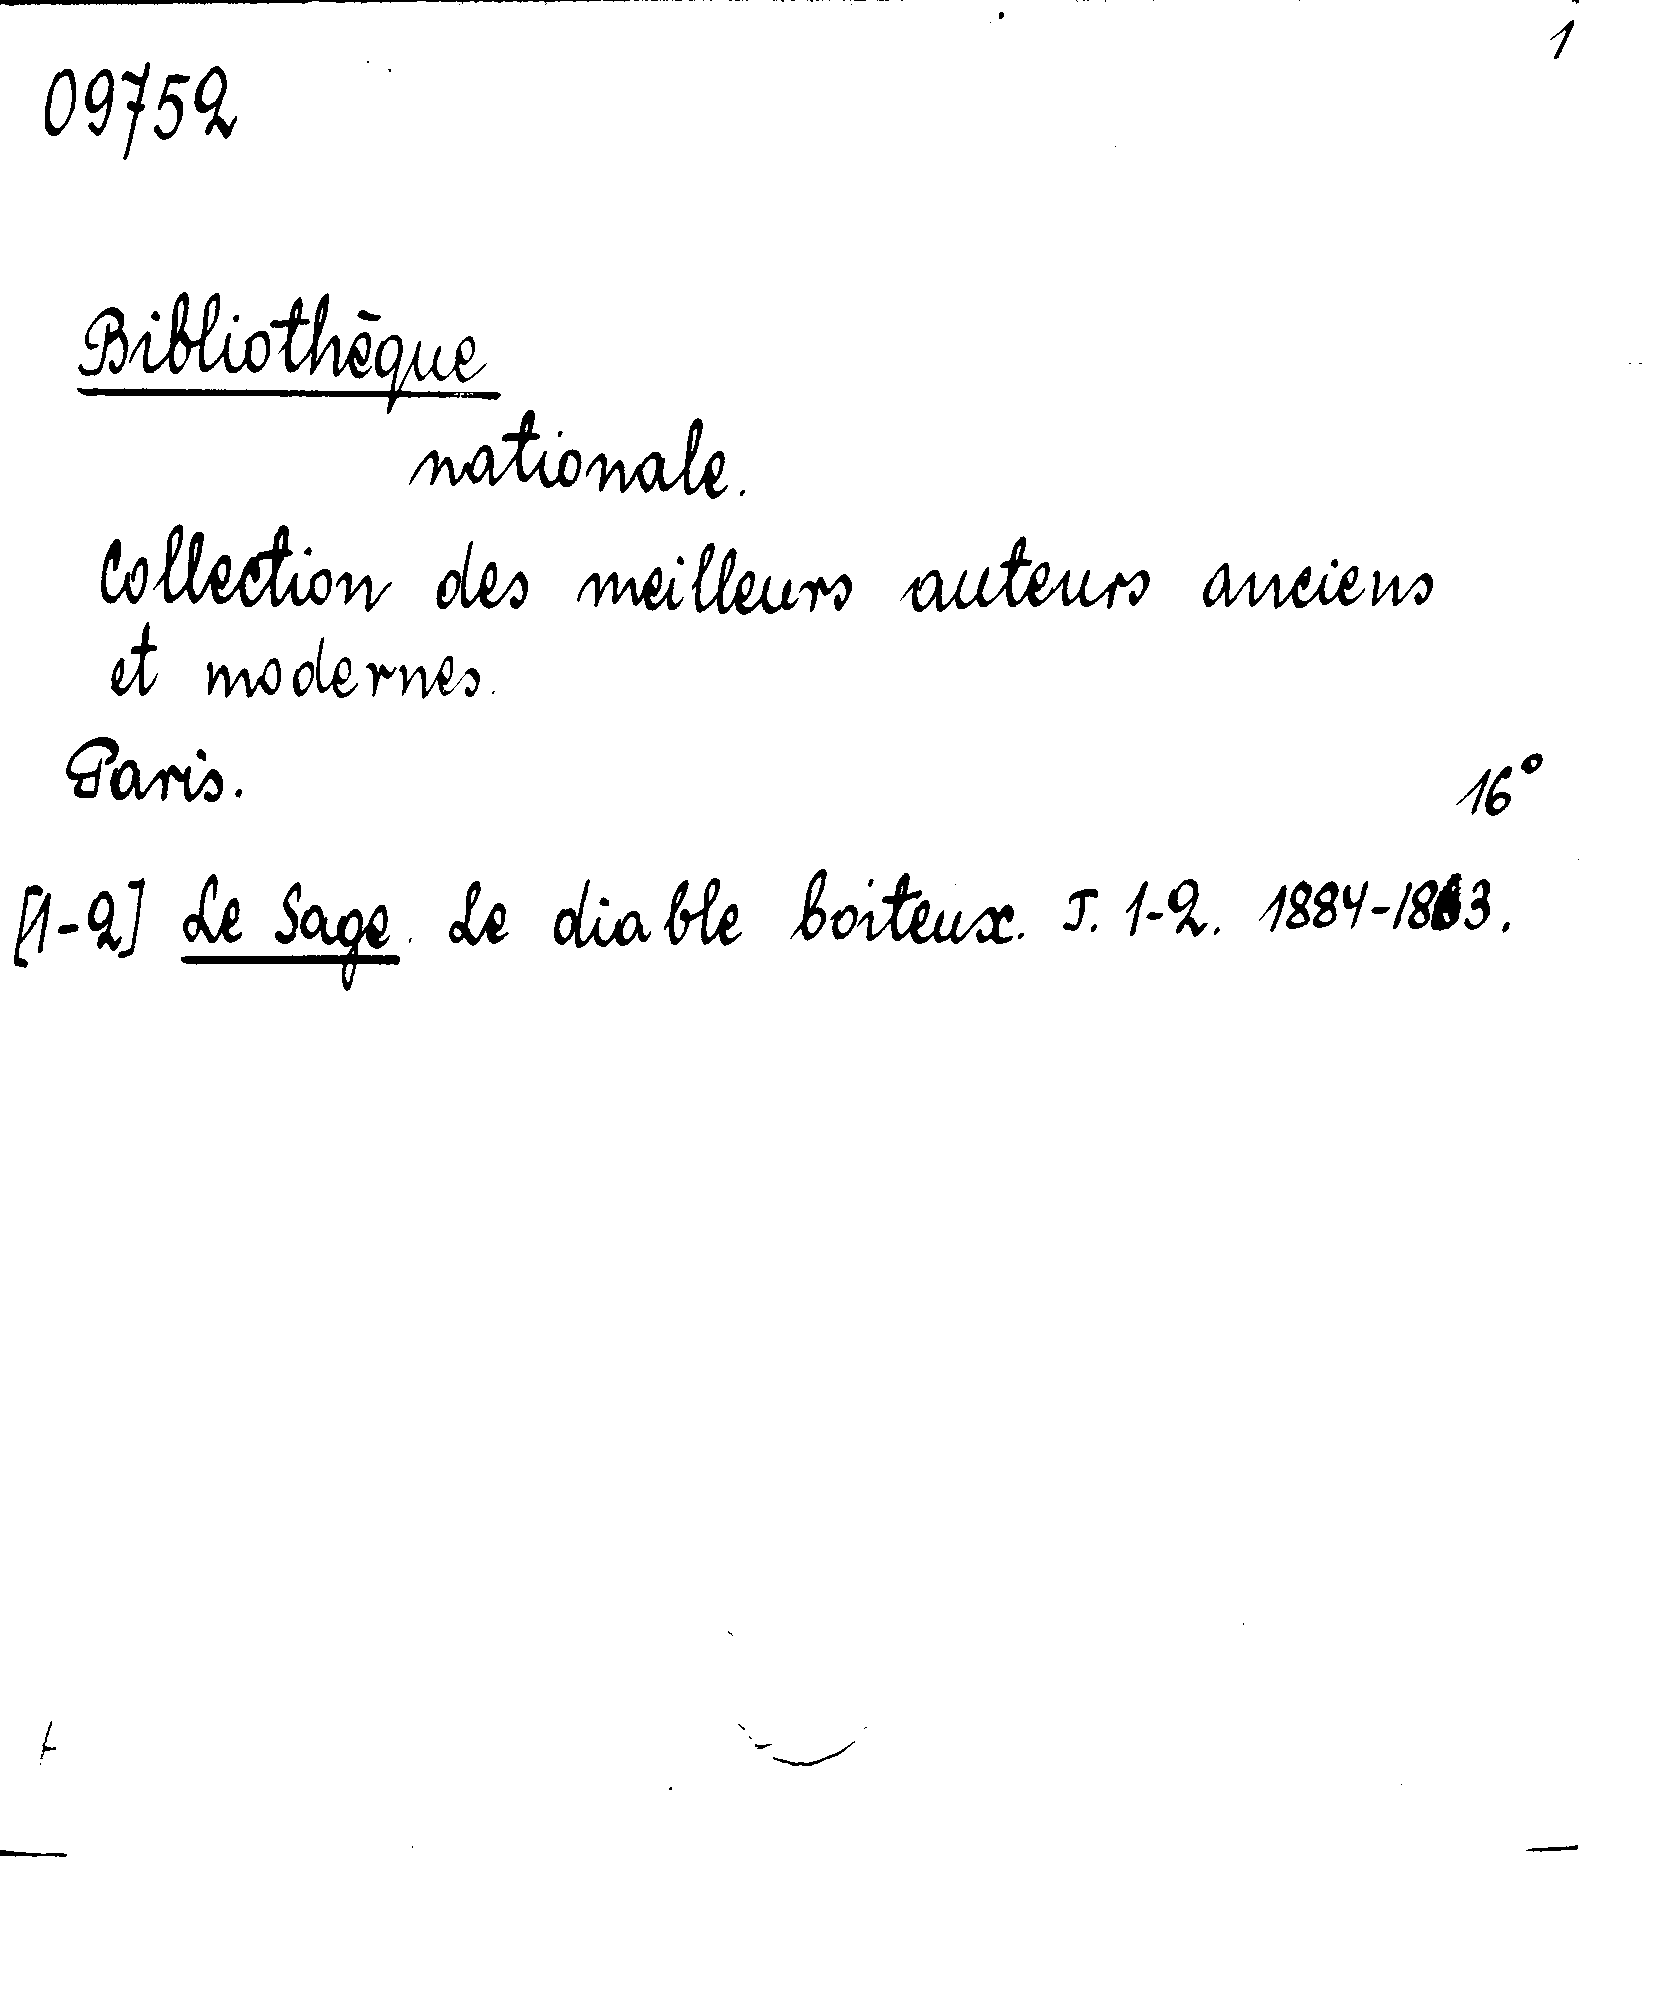 1
09752
Bibliothēque
nationale.
Collection des meilleurs auteurs anciens
et modernes.
Paris.
16°
[1-2] Le Sage. Le diable boiteux. T. 1-2. 1884-